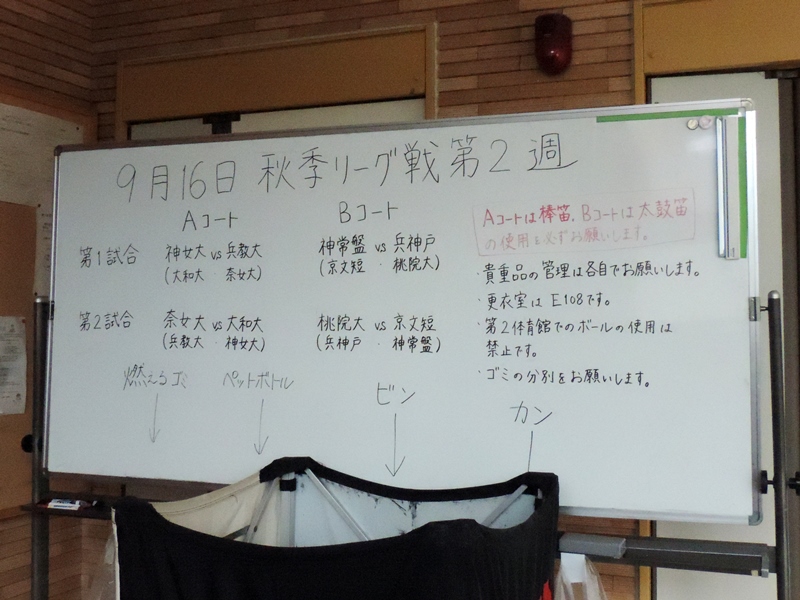 9月16日 秋季リーグ戦第2週
Aコート Bコート
第1試合 神女大 vs 兵教大 神常盤 vs 兵神戸
(大和大・奈女大) (京文短・桃院大)
第2試合 奈女大 vs 大和大 桃院大 vs 京文短
(兵教大・神女大) (兵神戸・神常盤)
Aコートは棒笛、Bコートは太鼓笛
の使用を必ずお願いします。
・貴重品の管理は各自でお願いします。
・更衣室はE108です。
・第2体育館でのボールの使用は
禁止です。
・ゴミの分別をお願いします。
燃えるゴミ ペットボトル ビン カン